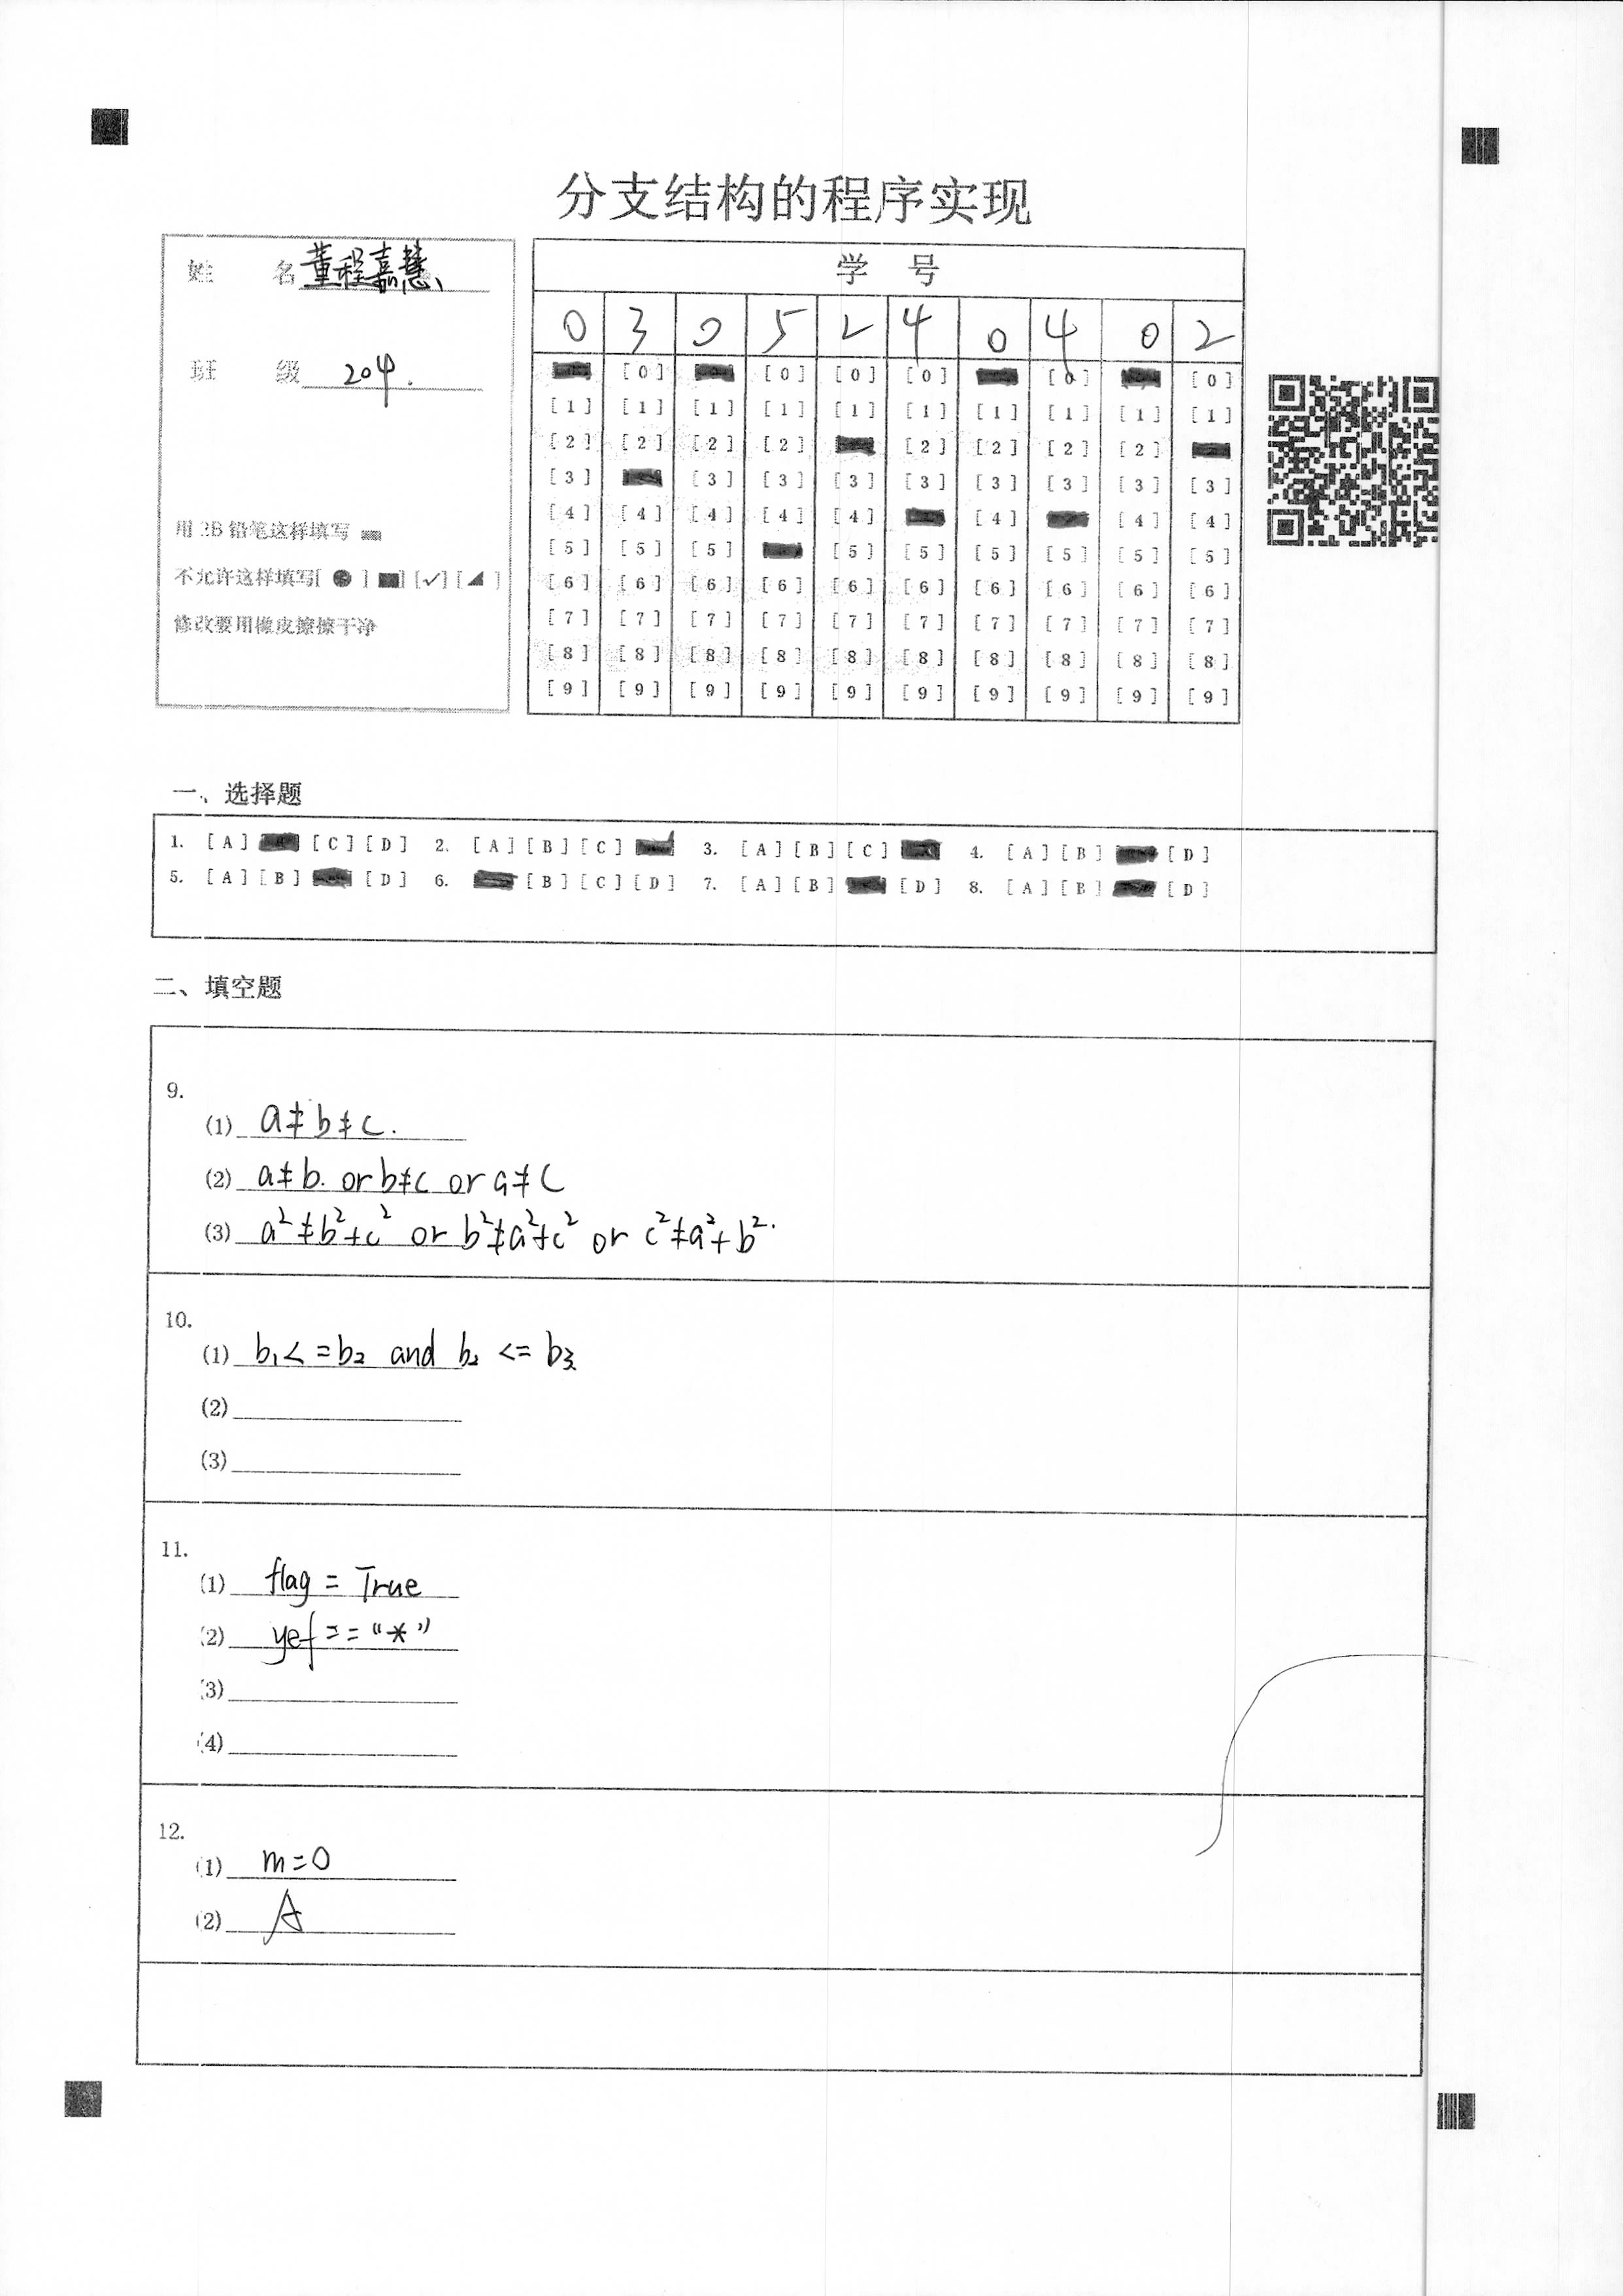 分支结构的程序实现
姓 名 董程嘉慧
班 级 204.
用 2B 铅笔这样填写
不允许这样填写[ ● ] [■] [✓] [◢ ]
修改要用橡皮擦擦干净
学 号
0 3 0 5 2 4 0 4 0 2
[0] [0] [0] [0] [0] [0]
[1] [1] [1] [1] [1] [1] [1] [1] [1] [1]
[2] [2] [2] [2] [2] [2] [2] [2]
[3] [3] [3] [3] [3] [3] [3] [3] [3]
[4] [4] [4] [4] [4] [4] [4] [4]
[5] [5] [5] [5] [5] [5] [5] [5] [5]
[6] [6] [6] [6] [6] [6] [6] [6] [6] [6]
[7] [7] [7] [7] [7] [7] [7] [7] [7] [7]
[8] [8] [8] [8] [8] [8] [8] [8] [8] [8]
[9] [9] [9] [9] [9] [9] [9] [9] [9] [9]
一、选择题
1. [A] [C] [D] 2. [A] [B] [C] 3. [A] [B] [C] 4. [A] [B] [D]
5. [A] [B] [D] 6. [B] [C] [D] 7. [A] [B] [D] 8. [A] [B] [D]
二、填空题
9.
(1) a≠b≠c.
(2) a≠b. or b≠c or a≠c
(3) a²≠b²+c² or b²≠a²+c² or c²≠a²+b².
10.
(1) b₁<=b₂ and b₂ <= b₃
(2)
(3)
11.
(1) flag = True
(2) yef == "*"
(3)
(4)
12.
(1) m=0
(2) A